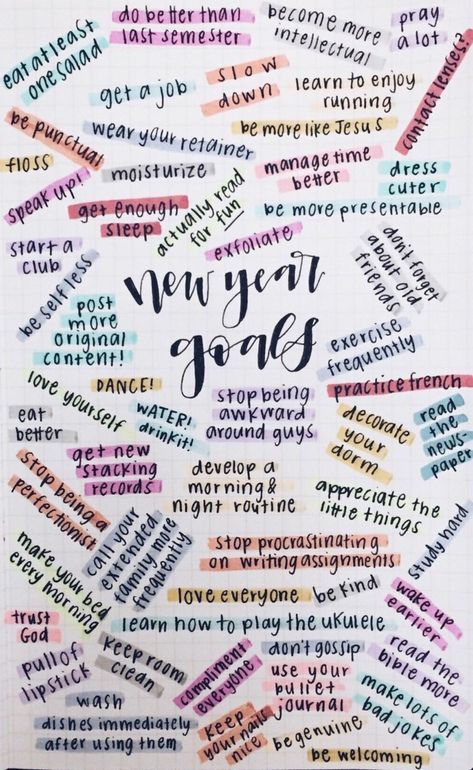 do better than
last semester
become more
intellectual
pray
a lot
eat at least
one salad
get a job
slow
down
learn to enjoy
running
contact lenses?
be punctual
wear your retainer
be more like Jesus
floss
moisturize
manage time
better
dress
cuter
speak up!
get enough
sleep
actually read
for fun
be more presentable
start a
club
exfoliate
don't forget
about old
friends
be self less
new year
goals
post
more
original
content!
exercise
frequently
love yourself
DANCE!
practice french
eat
better
WATER!
drink it!
stop being
awkward
around guys
decorate
your
dorm
read
the
news
paper
get new
stacking
records
stop being a
perfectionist
develop a
morning &
night routine
appreciate the
little things
call your
extended
family more
frequently
stop procrastinating
on writing assignments
study hard
make your bed
every morning
love everyone
be kind
wake up
earlier
trust
God
learn how to play the ukulele
pull of
lipstick
keep room
clean
compliment
everyone
don't gossip
read the
bible more
use your
bullet
journal
wash
dishes immediately
after using them
keep
your nails
nice
be genuine
make lots of
bad jokes
be welcoming